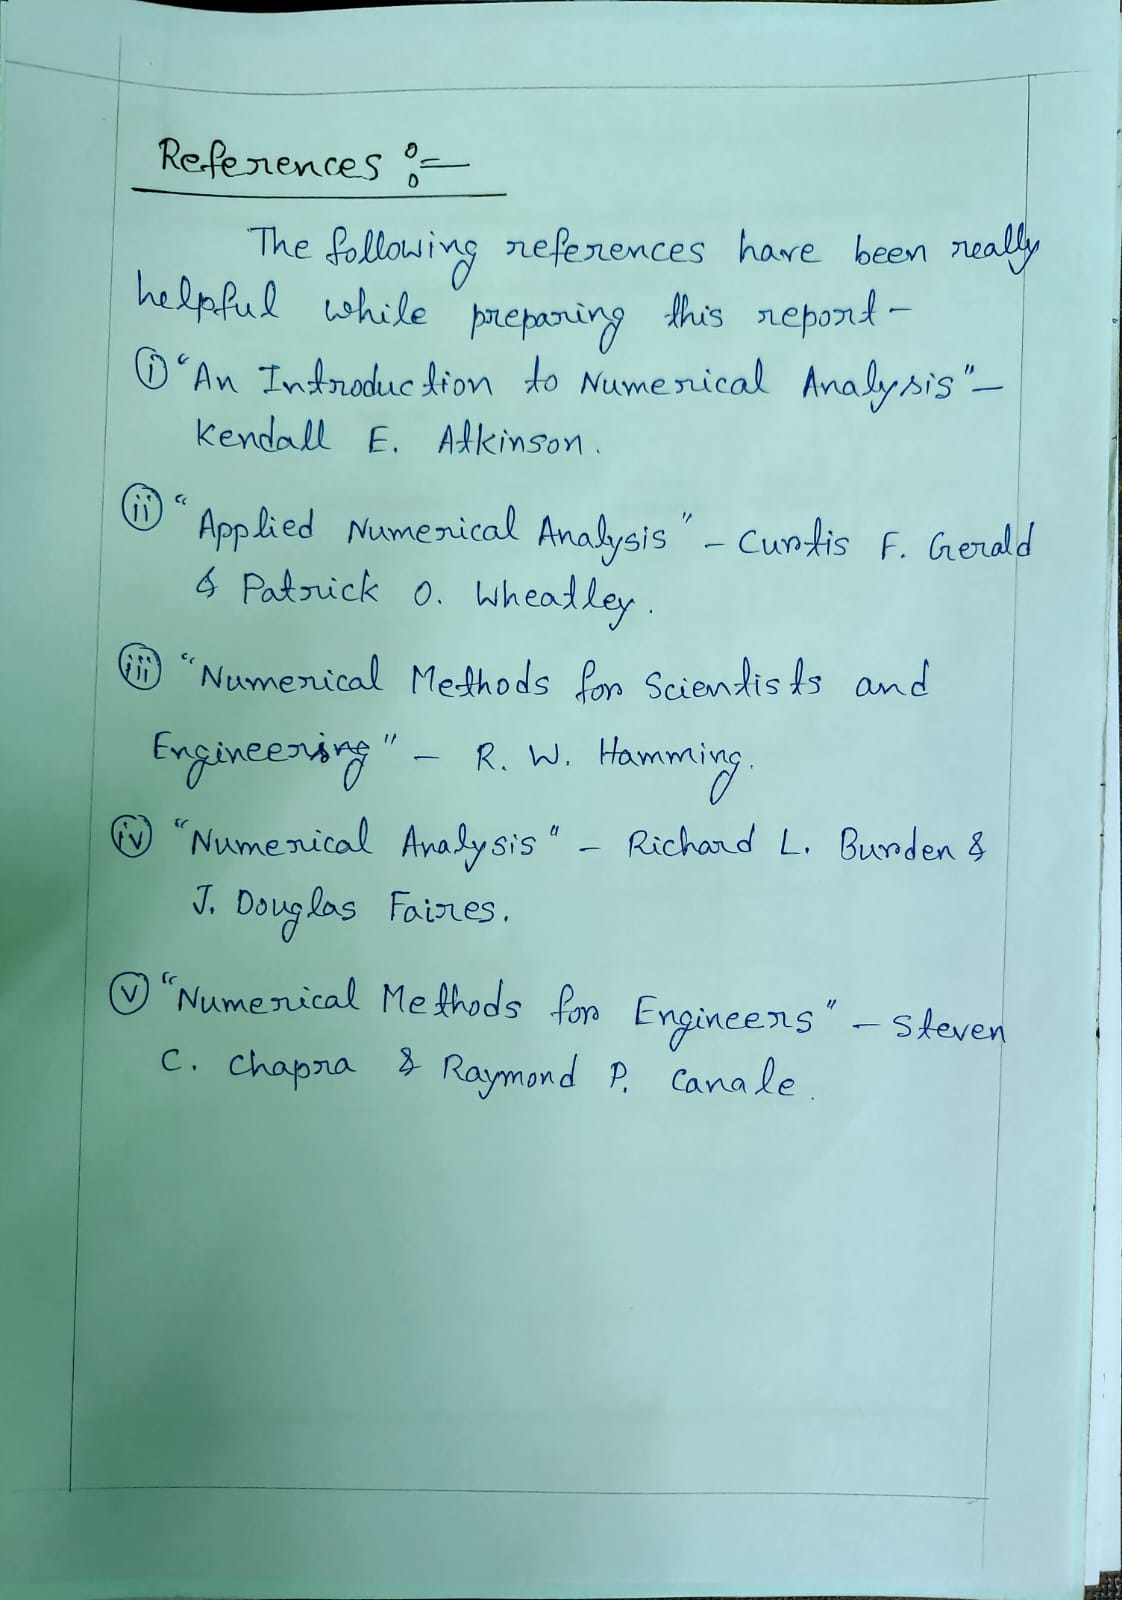 References :-
The following references have been really
helpful while preparing this report -
(i) "An Introduction to Numerical Analysis" -
Kendall E. Atkinson.
(ii) "Applied Numerical Analysis" - Curtis F. Gerald
& Patrick O. Wheatley.
(iii) "Numerical Methods for Scientists and
Engineering" - R. W. Hamming.
(iv) "Numerical Analysis" - Richard L. Burden &
J. Douglas Faires.
(v) "Numerical Methods for Engineers" - Steven
C. Chapra & Raymond P. Canale.